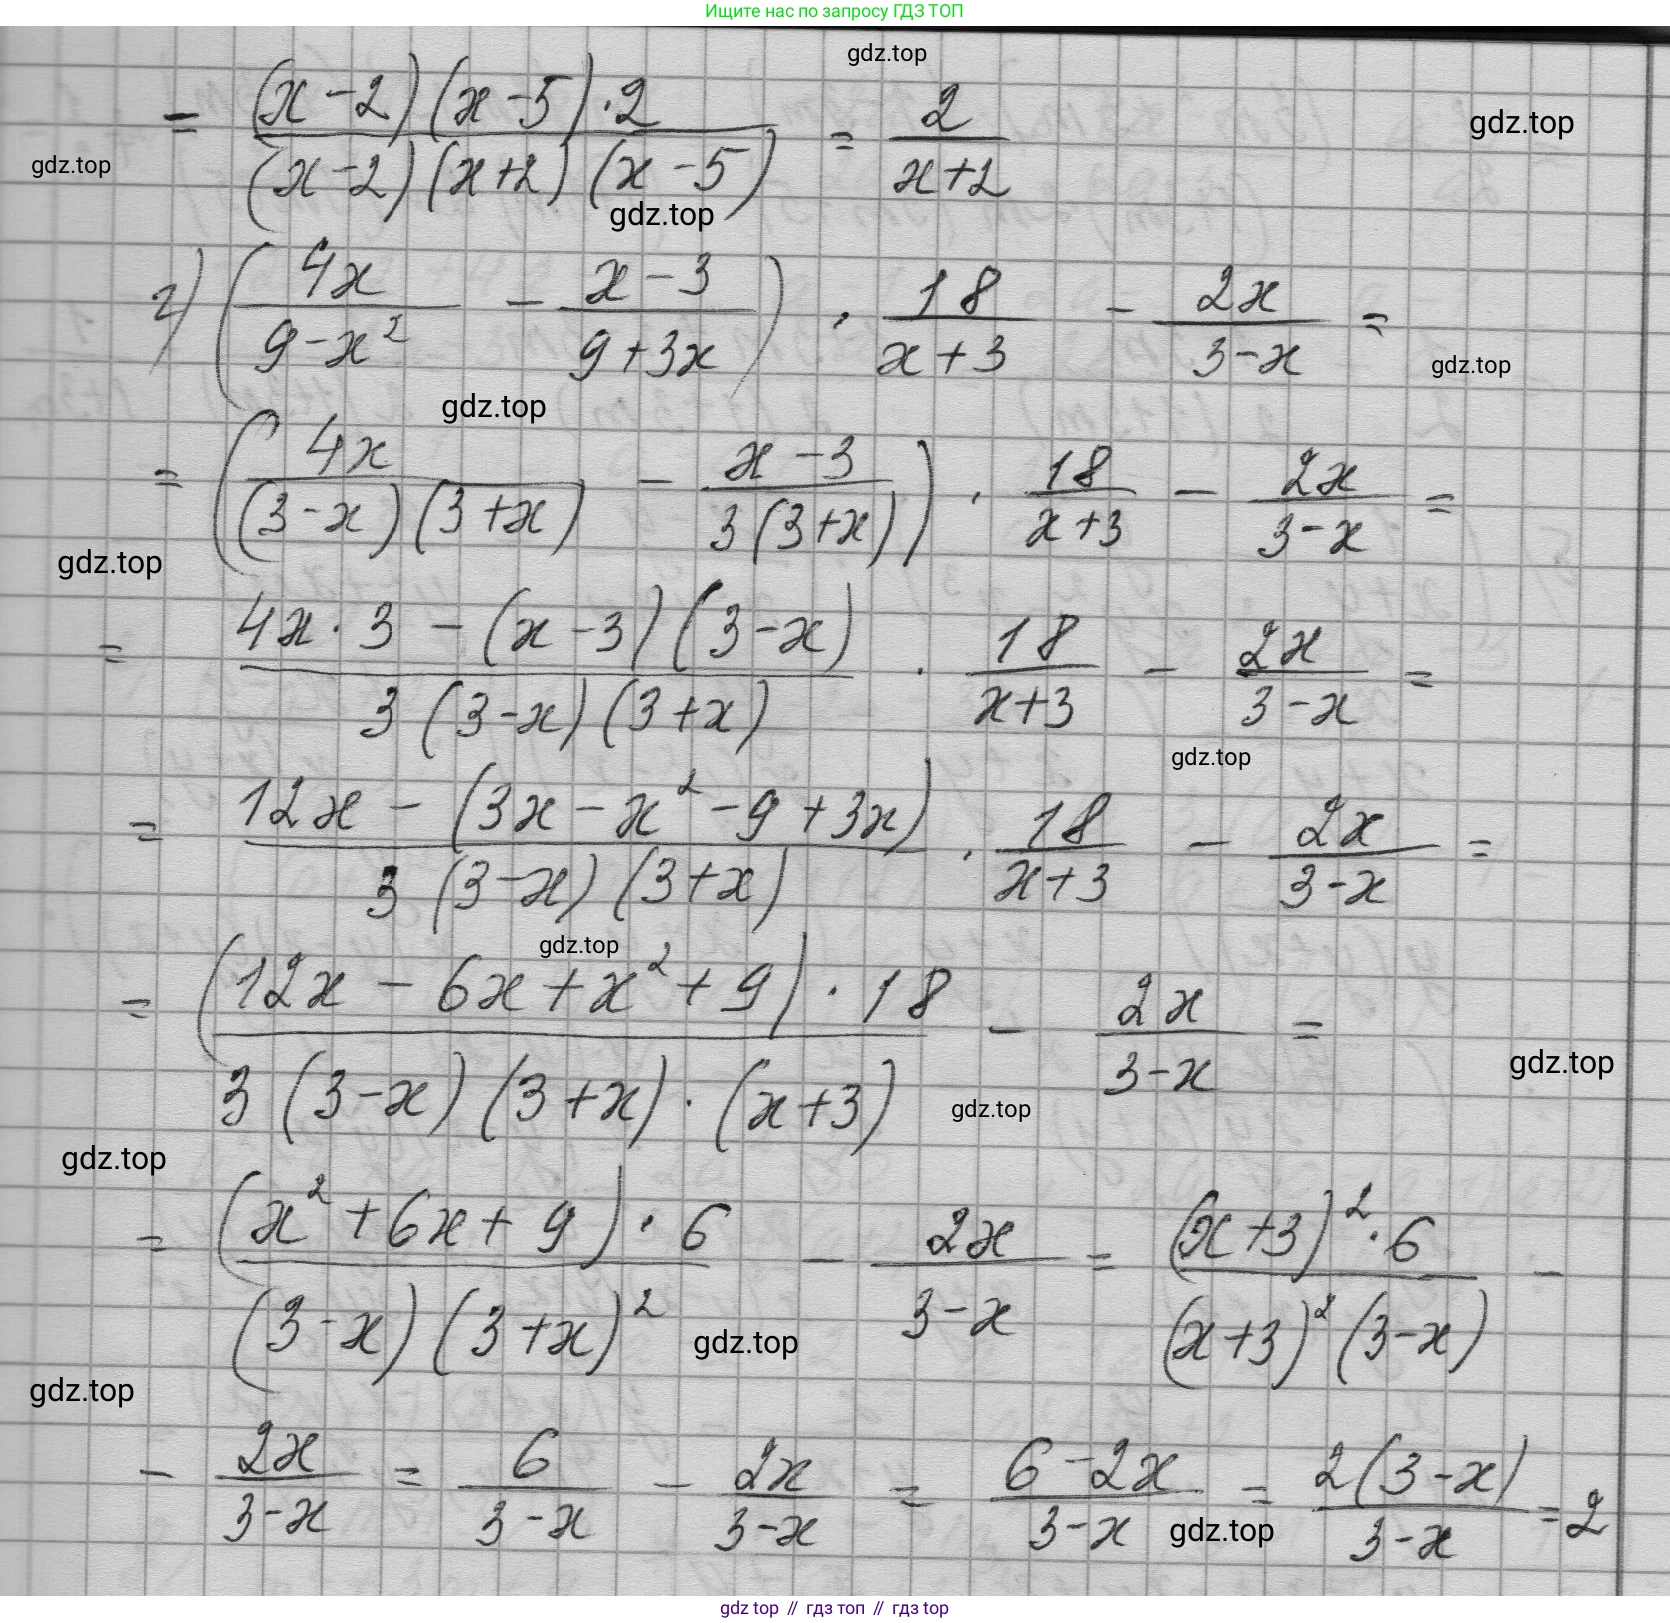 Ищите нас по запросу ГДЗ ТОП
gdz.top
= ((x-2)(x-5)·2)/((x-2)(x+2)(x-5)) = 2/(x+2)
gdz.top
gdz.top
gdz.top
г) (4x/(9-x²) - (x-3)/(9+3x)) · 18/(x+3) - 2x/(3-x) =
gdz.top
gdz.top
= (4x/((3-x)(3+x)) - (x-3)/(3(3+x))) · 18/(x+3) - 2x/(3-x) =
gdz.top
= (4x·3-(x-3)(3-x))/(3(3-x)(3+x)) · 18/(x+3) - 2x/(3-x) =
gdz.top
= (12x-(3x-x²-9+3x))/(3(3-x)(3+x)) · 18/(x+3) - 2x/(3-x) =
gdz.top
= ((12x-6x+x²+9)·18)/(3(3-x)(3+x)·(x+3)) - 2x/(3-x) =
gdz.top
gdz.top
gdz.top
= ((x²+6x+9)·6)/((3-x)(3+x)²) - 2x/(3-x) = ((x+3)²·6)/((x+3)²(3-x)) -
gdz.top
gdz.top
- 2x/(3-x) = 6/(3-x) - 2x/(3-x) = (6-2x)/(3-x) = (2(3-x))/(3-x) = 2
gdz.top
gdz top // гдз топ // гдз top